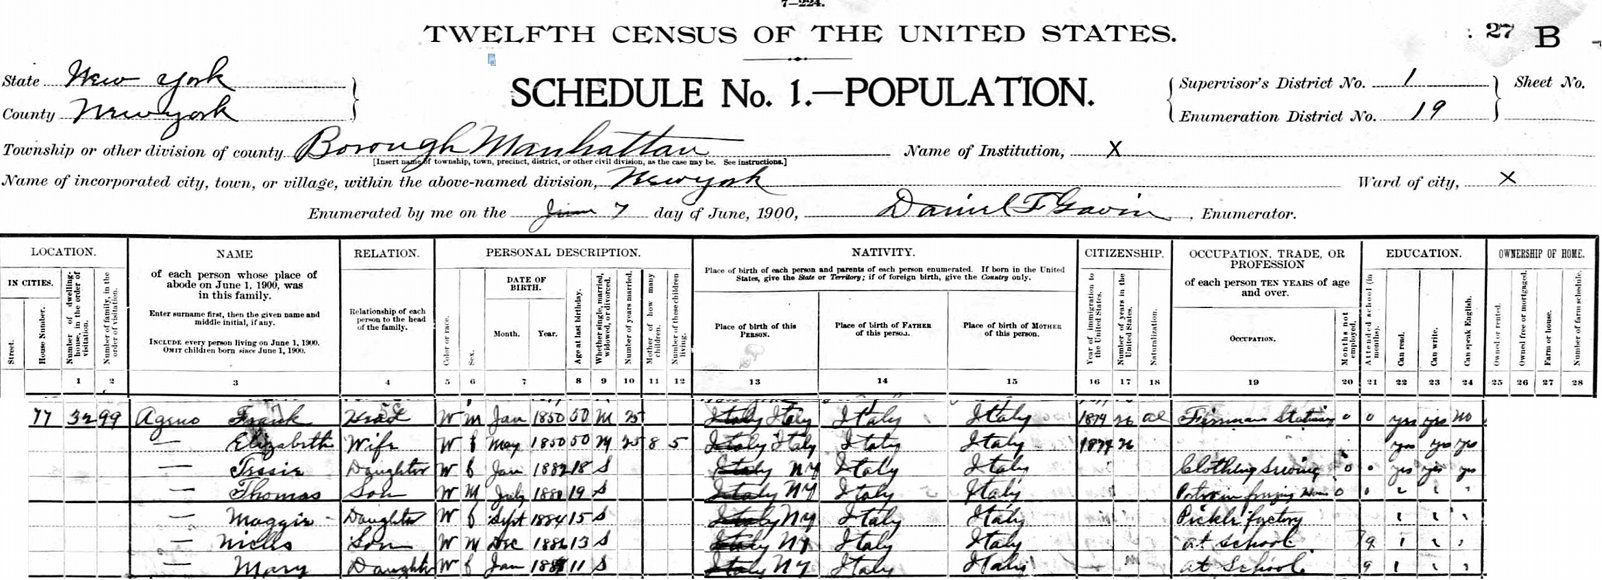 7—224.
TWELFTH CENSUS OF THE UNITED STATES. 27 B
State New York
County New York
SCHEDULE No. 1.—POPULATION.
Supervisor's District No. 1 Sheet No.
Enumeration District No. 19
Township or other division of county Borough Manhattan Name of Institution, X
[Insert name of township, town, precinct, district, or other civil division, as the case may be. See instructions.]
Name of incorporated city, town, or village, within the above-named division, New York Ward of city, X
Enumerated by me on the June 7 day of June, 1900, Daniel F Gavin, Enumerator.
LOCATION. NAME RELATION. PERSONAL DESCRIPTION. NATIVITY. CITIZENSHIP. OCCUPATION, TRADE, OR PROFESSION EDUCATION. OWNERSHIP OF HOME.
IN CITIES.
Street.
House Number.
Number of dwelling-house, in the order of visitation.
Number of family, in the order of visitation.
of each person whose place of abode on June 1, 1900, was in this family.
Enter surname first, then the given name and middle initial, if any.
INCLUDE every person living on June 1, 1900.
OMIT children born since June 1, 1900.
Relationship of each person to the head of the family.
Color or race.
Sex.
DATE OF BIRTH.
Month. Year.
Age at last birthday.
Whether single, married, widowed, or divorced.
Number of years married.
Mother of how many children.
Number of these children living.
Place of birth of each person and parents of each person enumerated. If born in the United States, give the State or Territory; if of foreign birth, give the Country only.
Place of birth of this PERSON.
Place of birth of FATHER of this person.
Place of birth of MOTHER of this person.
Year of immigration to the United States.
Number of years in the United States.
Naturalization.
of each person TEN YEARS of age and over.
OCCUPATION.
Months not employed.
Attended school (in months).
Can read.
Can write.
Can speak English.
Owned or rented.
Owned free or mortgaged.
Farm or house.
Number of farm schedule.
1 2 3 4 5 6 7 8 9 10 11 12 13 14 15 16 17 18 19 20 21 22 23 24 25 26 27 28
77 32 99 Ageno Frank Head W M Jan 1850 50 M 25 Italy Italy Italy Italy 1874 26 al 0 0 yes yes no
— Elizabeth Wife W f May 1850 50 M 25 8 5 Italy Italy Italy Italy 1874 26 yes yes yes
— Tessie Daughter W f Jan 1882 18 S Italy NY Italy Italy Clothing Sewing 0 0 yes yes yes
— Thomas Son W M July 1880 19 S Italy NY Italy Italy 0
— Maggie Daughter W f Sept 1884 15 S Italy NY Italy Italy Pickle factory
— Son W M Dec 1886 13 S Italy NY Italy Italy at School 9
— Mary Daughter W f Jan 11 S Italy NY Italy Italy at School 9